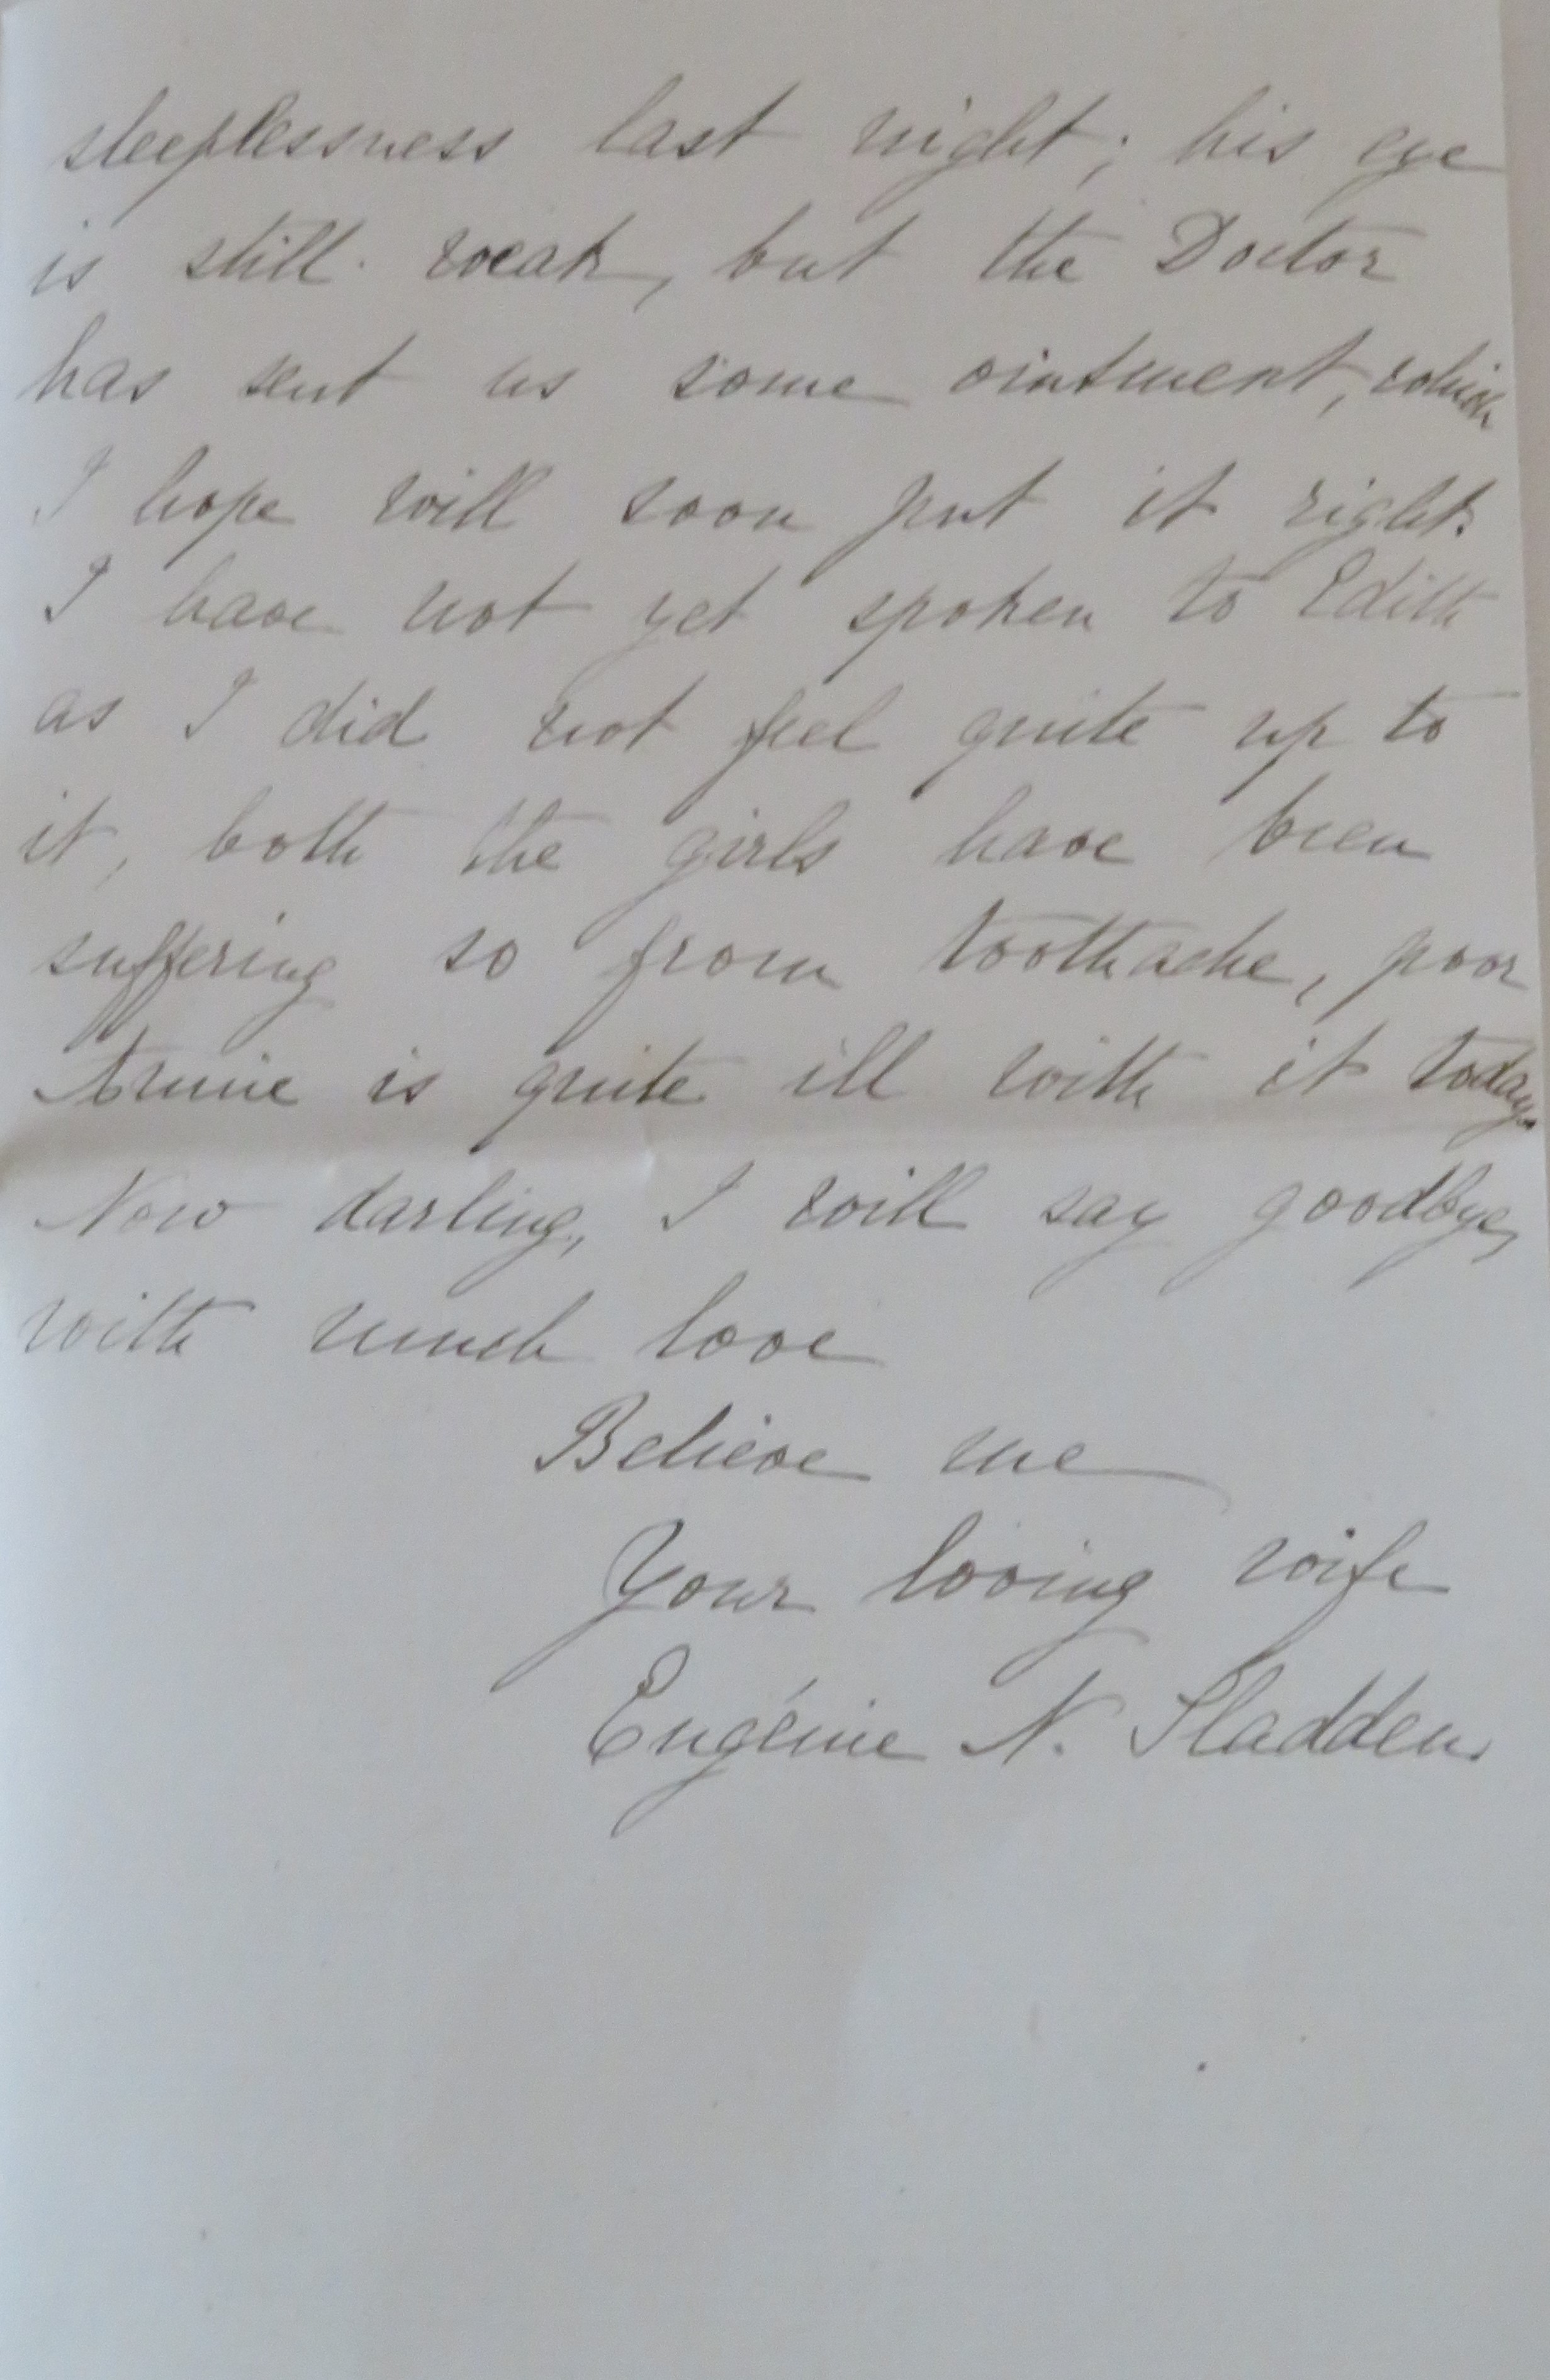 sleeplessness last night; his eye
is still weak, but the Doctor
has sent us some ointment, which
I hope will soon put it right.
I have not yet spoken to Edith
as I did not feel quite up to
it, both the girls have been
suffering so from toothache, poor
Annie is quite ill with it today.
Now darling, I will say goodbye,
with much love
Believe me
Your loving wife
Eugénie N. Sladden.